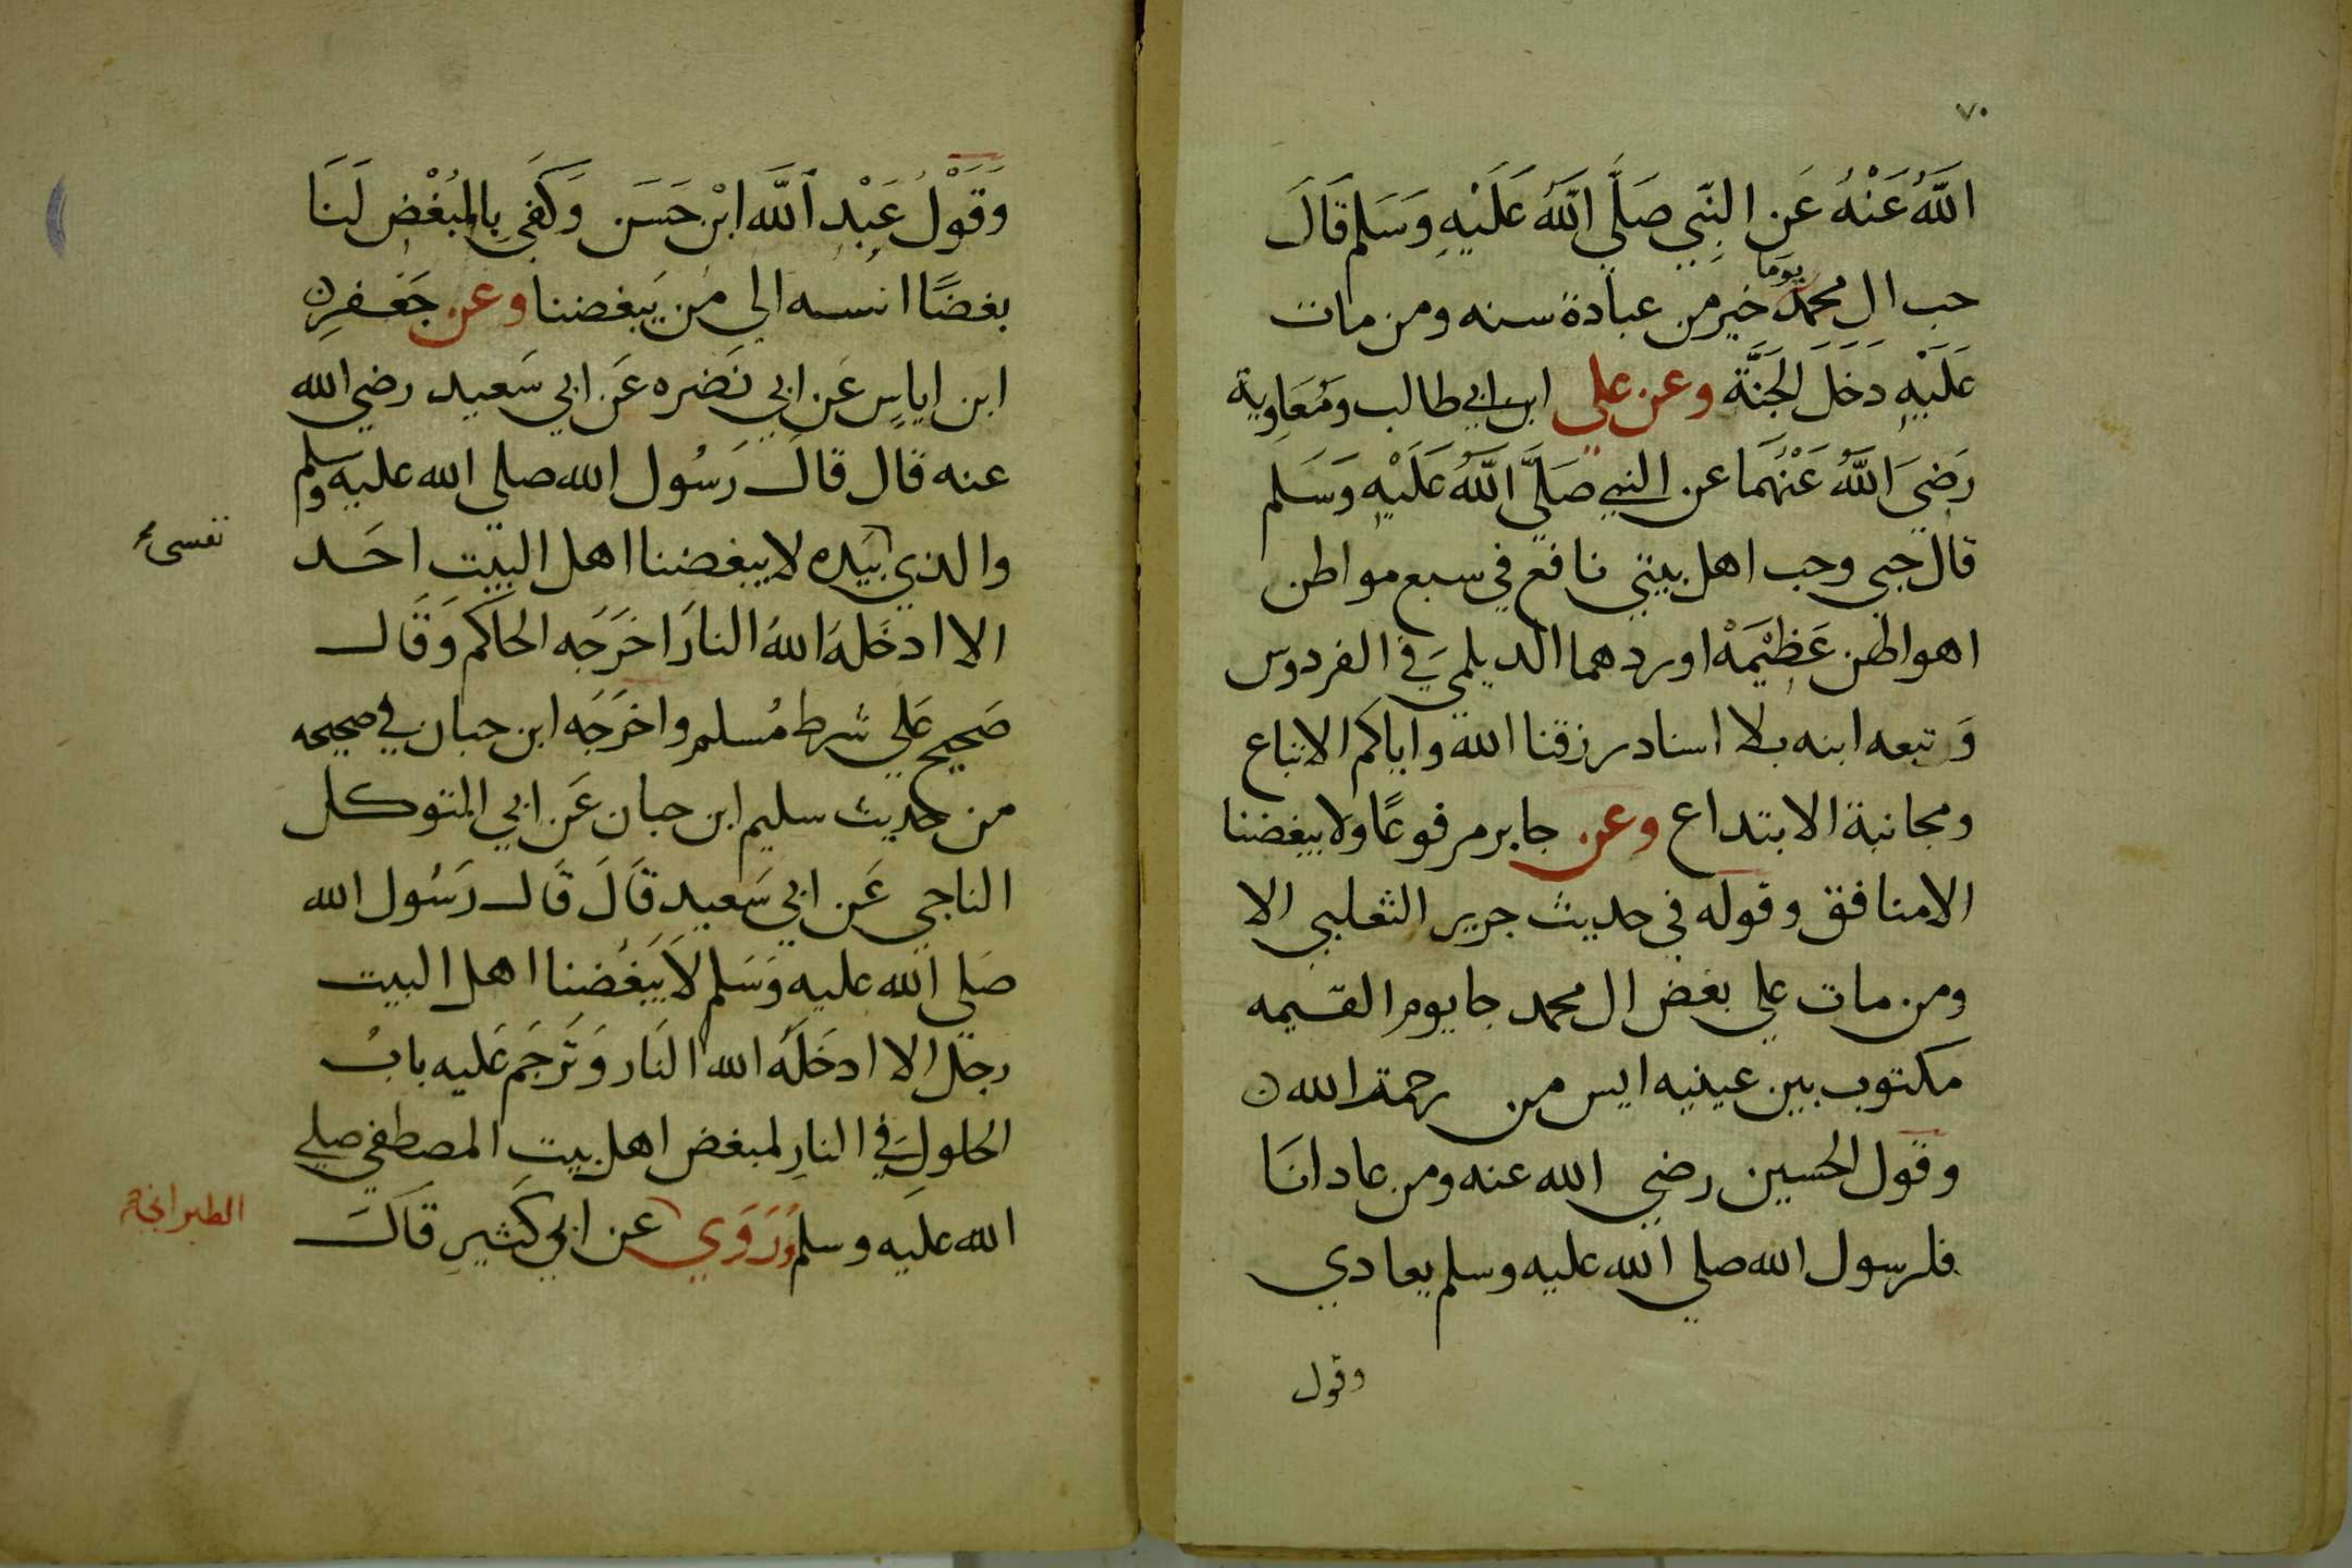 ٧٠
اللَّهُ عَنْهُ عَنِ النَّبِي صَلَّى اللَّهُ عَلَيْهِ وَسَلم قَالَ
حب ال محمد يومًا خير من عبادة سنه ومن مات
عَلَيْهِ دَخَلَ الجَنَّة وعن علي ابن ابي طالب ومُعَاوِية
رَضِيَ اللَّهُ عَنْهُمَا عن النبي صَلَّى اللَّهُ عَلَيْهِ وَسَلم
قال حبي وحب اهل بيتي نافع في سبع مواطن
اهواطن عَظِيْمَهْ اوردهما الديلمي في الفردوس
وَتبعه ابنه بلا اسناد رزقنا الله واياكم الاتباع
ومجانبة الابتداع وعن جابر مرفوعًا ولا يبغضنا
الا منافق وقوله في حديث جرير الثعلبي الا
ومن مات علي بغض ال محمد جا يوم القيمه
مكتوب بين عينيه ايس من رحمة الله ن
وقول الحسين رضي الله عنه ومن عادانَا
فلرسول الله صلي الله عليه وسلم يعادي
وقول
وَقَوْلُ عَبْدِ اللَّه ابْن حَسَن وَكَفَى بِالمُبْغْضِ لَنَا
بغضًا انسبه الي مَن يَبغضنا وعن جَعْفرِن
ابن اياسٍ عَن ابي نَضَره عَن ابي سَعيد رضي الله
عنه قال قالَ رَسُول الله صلي الله عليه وسلم
والذي بيَده لا يبغضنا اهل البيت احَد
نفسي
الا ادخَلهُ اللهُ النارَ اخرَجَه الحاكم وَقَال
صَحيح عَلي شرط مُسلم واخرَجَه ابن حبان في صحيحه
من حديث سليم ابن حبان عَن ابي المتوكل
الناجي عَن ابي سَعيدٍ قَالَ قَال رَسُول الله
صَلي الله عليه وَسَلم لاَ يَبَغُضنا اهل البيت
رجل الا ادخَلَهُ الله النَار وَتَرجَم عَليه بابُ
الحلولِ في النارِ لمبغض اهل بيتِ المصطفي صلي
الله عَليَه وسلم وَرَوَي عن ابي كَثيرِ قَالَ